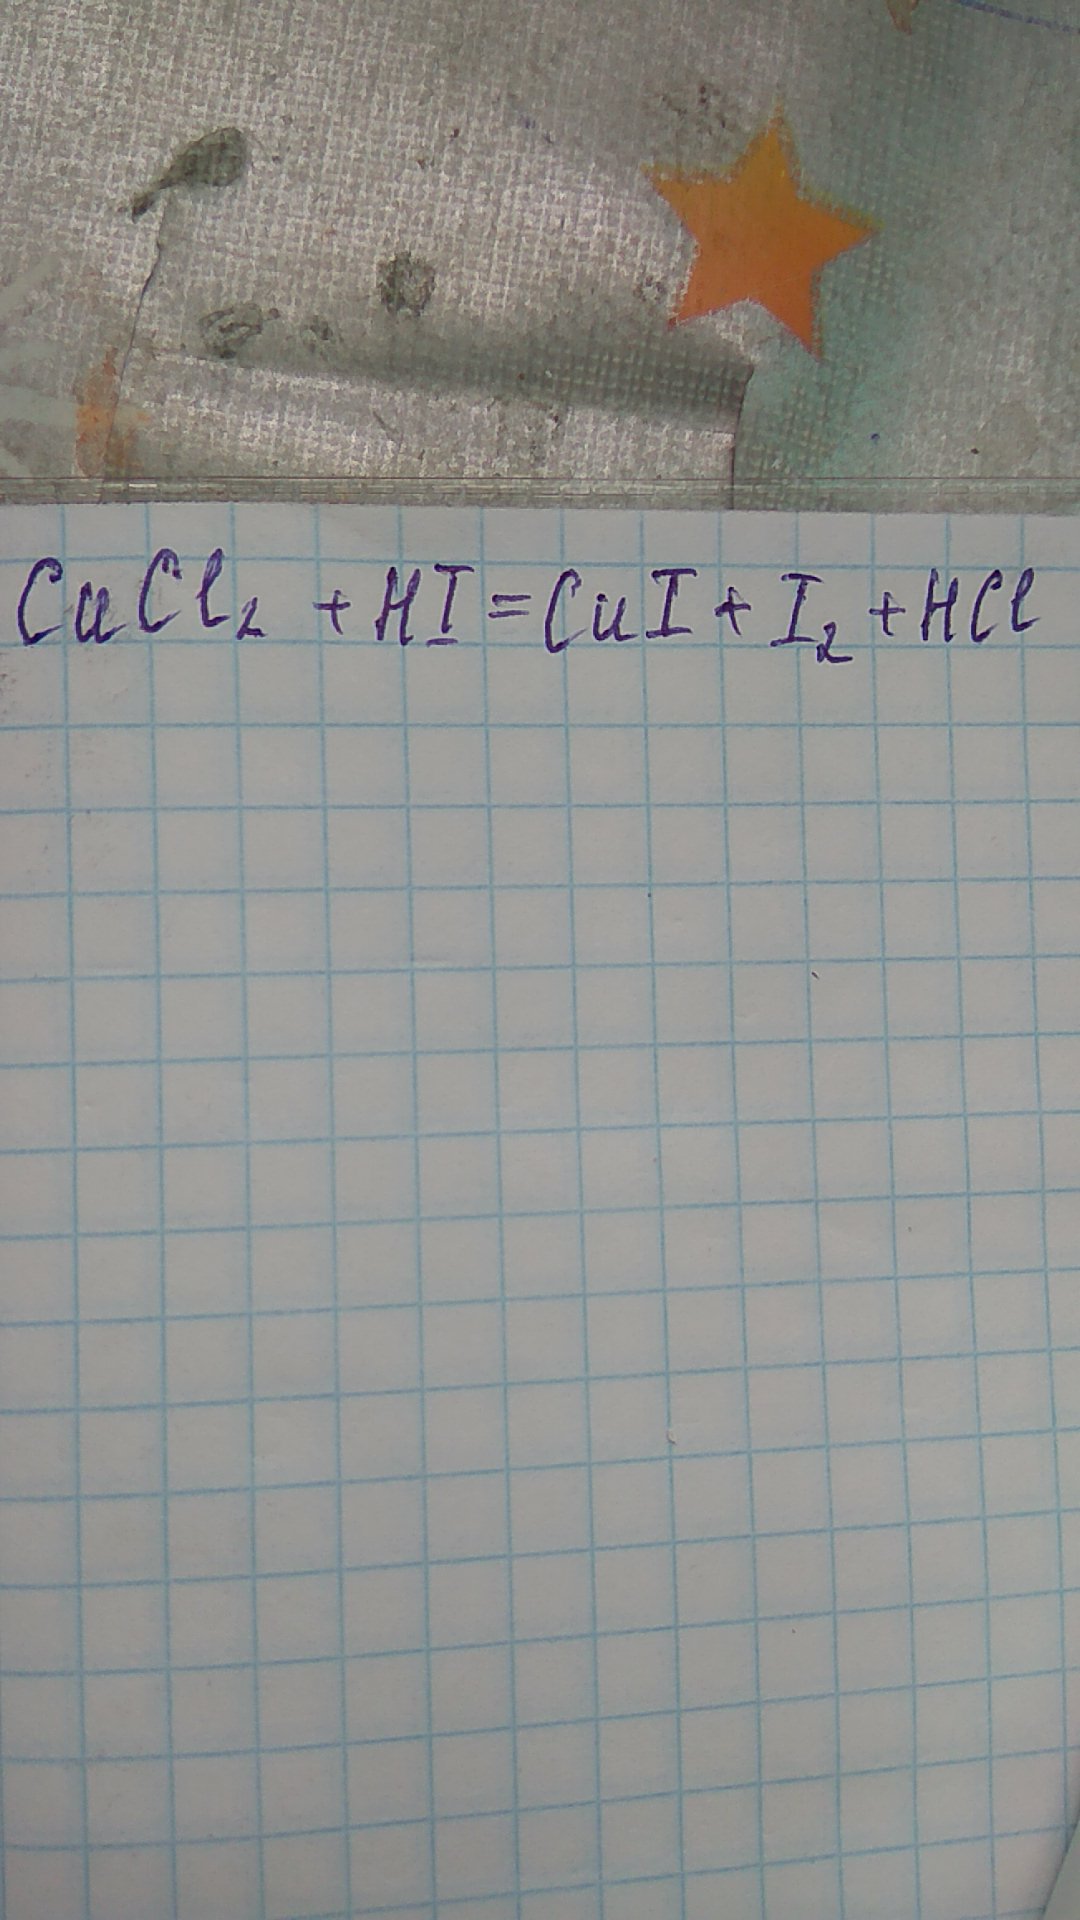 CuCl₂ + HI = CuI + I₂ + HCl